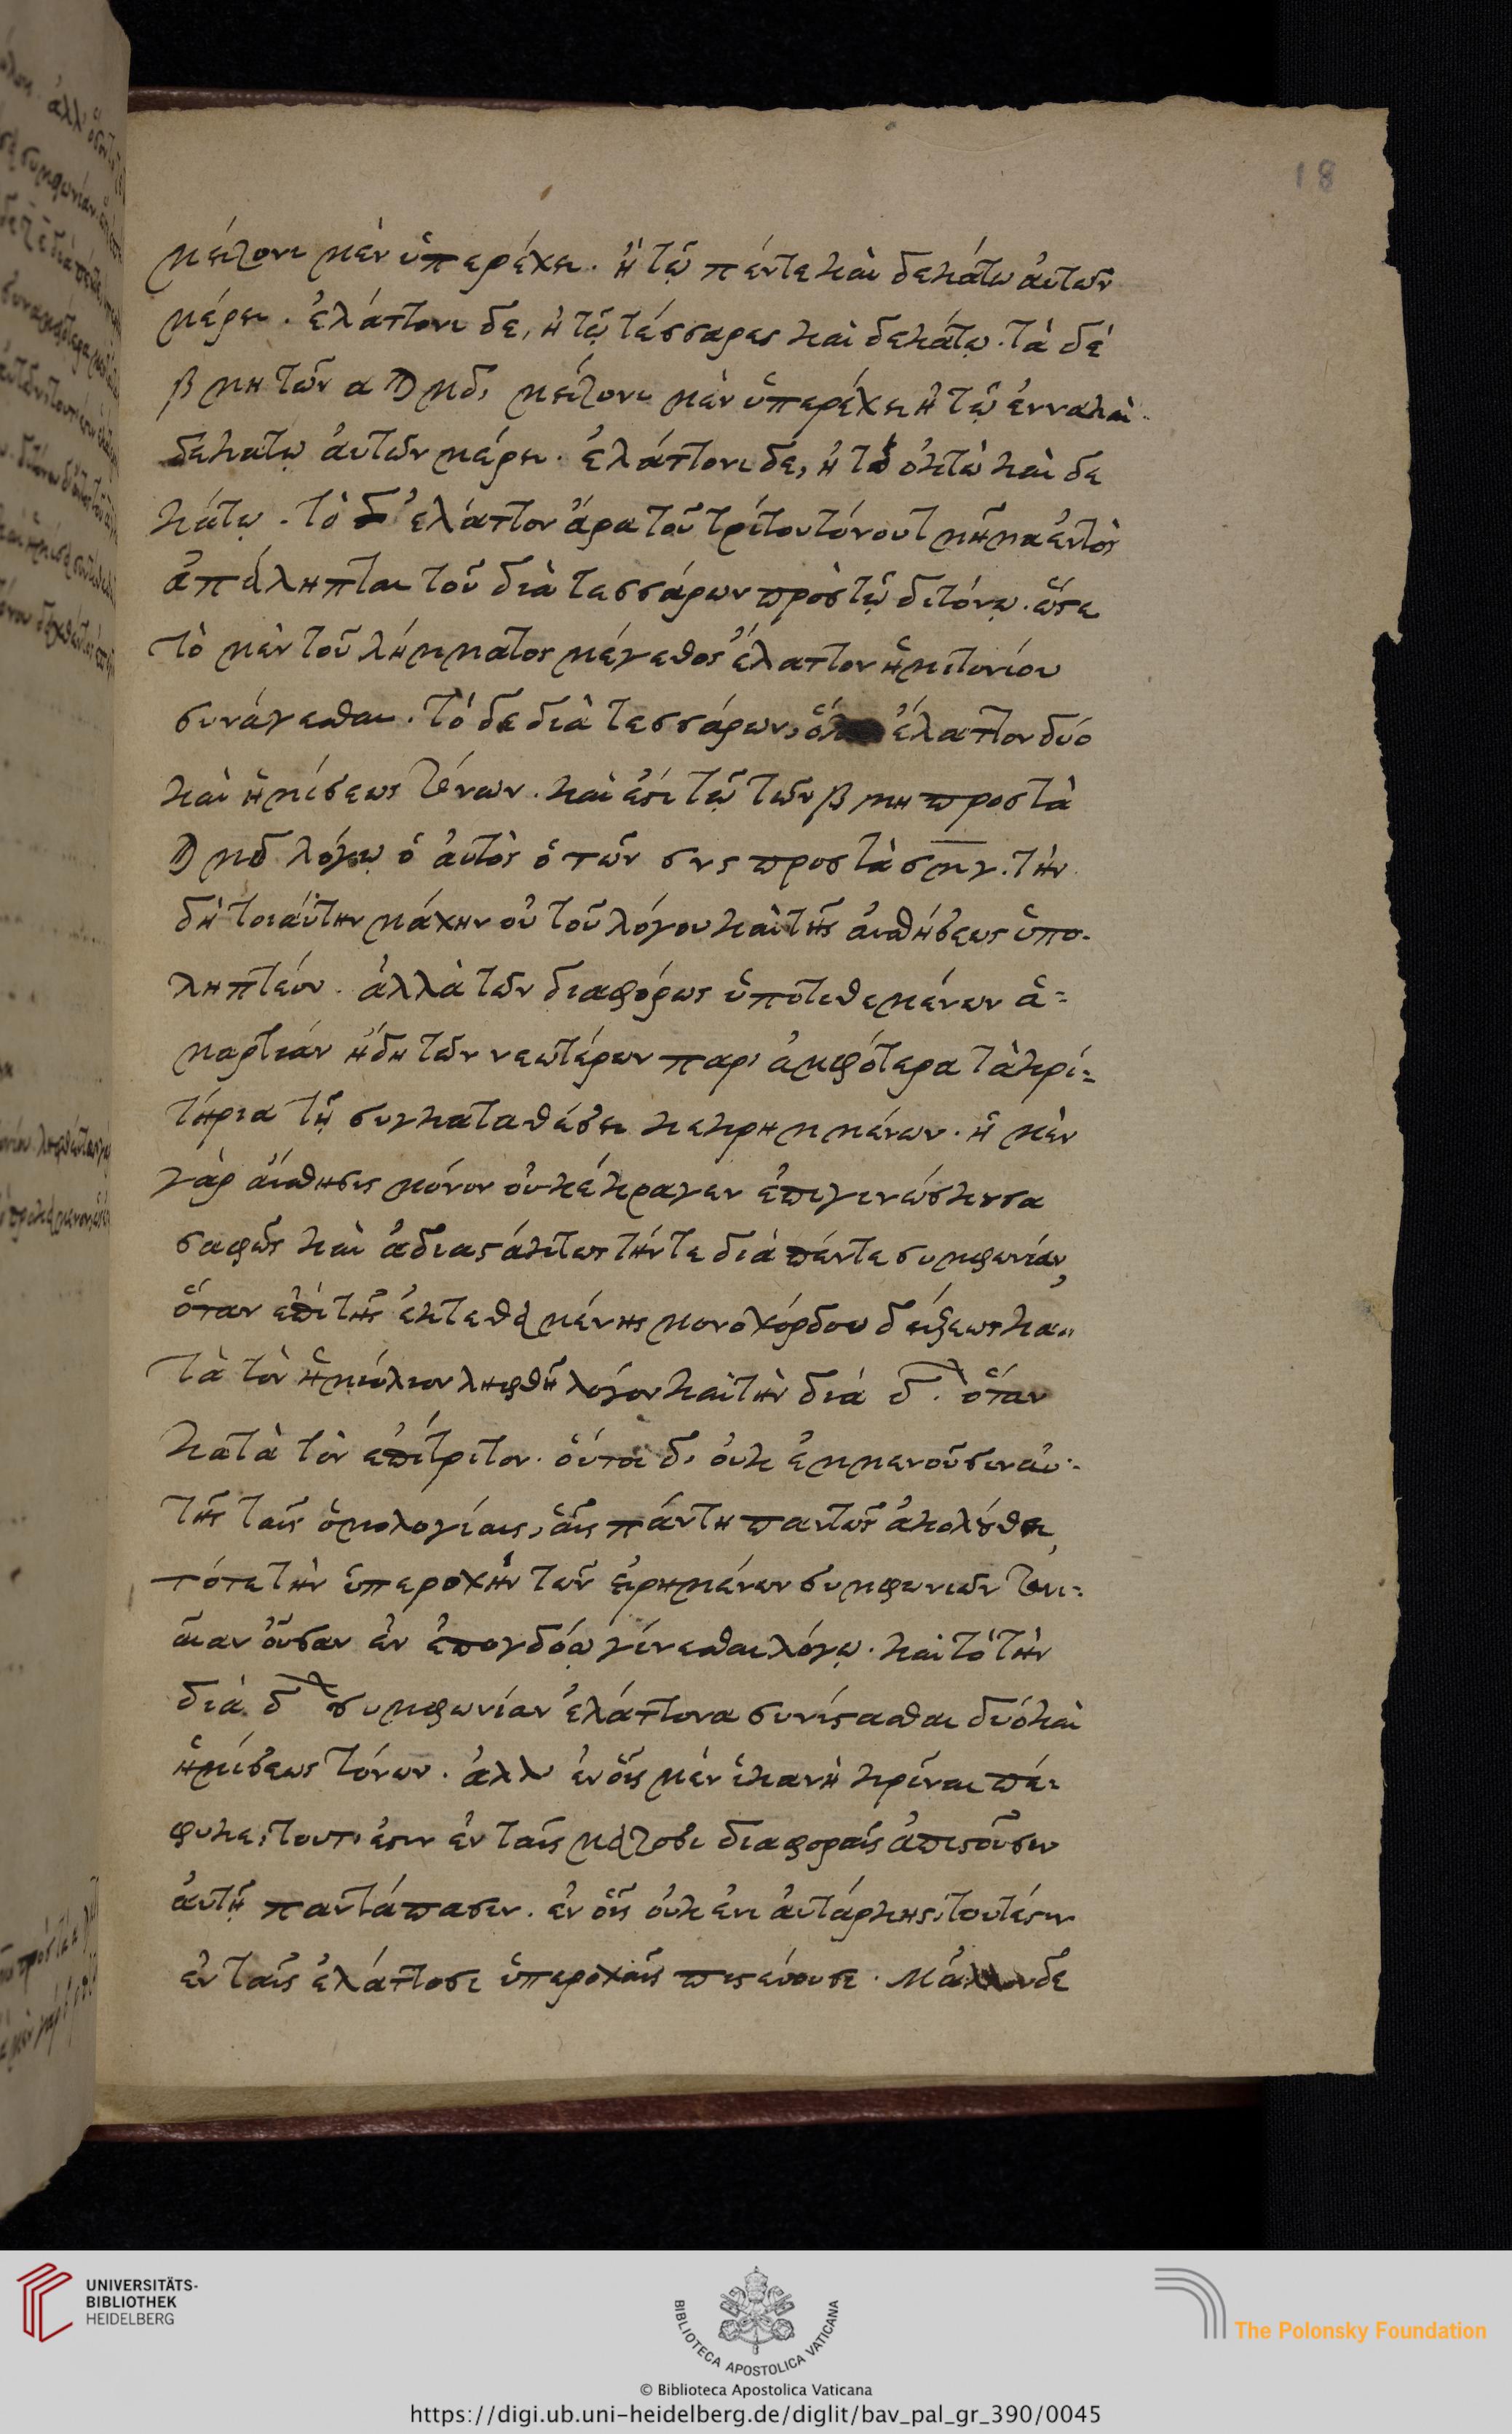 18
μείζονι μὲν ὑπερέχει. ἢ τῷ πέντε καὶ δεκάτω αὐτῶν
μέρει. ἐλάττονι δε, ἢ τῷ τέσσαρες καὶ δεκάτῳ. τὰ δὲ
β μη τῶν α Ϡ μδ, μείζονι μὲν ὑπερέχει ἢ τῷ ἐννακαι
δεκατῳ ἀυτῶν μέρει. ἐλάττονι δέ, ἢ τῷ ὀκτὼ καὶ δε
κάτῳ. τὸ δ' ἐλάττον ἄρα τοῦ τρίτου τόνου τμῆμα ἐντὸς
ἀπείληπται τοῦ διὰ τεσσάρων πρὸς τῷ διτόνῳ. ὥστε
τὸ μὲν τοῦ λήμματος μέγεθος ἔλαττον ἡμιτονίου
συνάγεσθαι. τὸ δε διὰ τεσσάρων, ὅλον ἔλαττον δύο
καὶ ἡμίσεως τόνων. καὶ ἐστι τῷ τῶν β μη προς τὰ
Ϡ μδ λόγῳ ὁ ἀυτὸς ὁ τῶν σνς προς τὰ σμγ. τὴν
δὴ τοιάυτην μάχην οὐ τοῦ λόγου καὶ τῆς ἀισθήσεως ὑπο-
ληπτέον. ἀλλὰ τῶν διαφόρως ὑποτιθεμένων ἁ-
μαρτίαν ἤδη τῶν νεωτέρων παρ' ἀμφότερα τὰ κρι-
τήρια τῇ συγκαταθέσει κεχρημμένων. ἡ μὲν
γὰρ ἄισθησις μόνον οὐ κέκραγεν ἐπιγινώσκουσα
σαφῶς καὶ ἀδιαστάκτως τήν τε διὰ πέντε συμφωνίαν,
ὅταν ἐπὶ τῆς ἐκτεθειμένης μονοχόρδου δείξεως κα-
τὰ τὸν ἡμιόλιον ληφθῇ λόγον καὶ τὴν διὰ δ. ὅταν
κατὰ τὸν ἐπίτριτον. ὅυτοι δ' ὀυκ ἐμμενοῦσιν ἀυ-
τῆς ταῖς ὁμολογίαις, ἇις πάντη παντῶς ἀκολουθεῖ,
τότε τὴν ὑπεροχὴν τῶν εἰρημένων συμφωνιῶν τονι-
αίαν ὀῦσαν ἐν ἐπογδόῳ γίνεσθαι λόγῳ. καὶ τὸ τὴν
διὰ δ συμφωνίαν ἐλάττονα συνίστασθαι δυό καὶ
ἡμίσεως τόνων. ἀλλ' ἐν ὅις μὲν ἱκανὴ κρίναι πέ-
φυκε, τουτ' ἐστιν ἐν ταῖς μείζοσι διαφοραῖς ἀπιστοῦσιν
ἀυτῇ παντάπασιν. ἐν ὅις ὀυκ ἐτι ἀυτάρκης, τουτέστιν
ἐν ταῖς ἐλάττοσι ὑπεροχαῖς πιστεύουσι. μᾶλλον δε
UNIVERSITÄTS-
BIBLIOTHEK
HEIDELBERG
BIBLIOTECA APOSTOLICA VATICANA
The Polonsky Foundation
© Biblioteca Apostolica Vaticana
https://digi.ub.uni-heidelberg.de/diglit/bav_pal_gr_390/0045